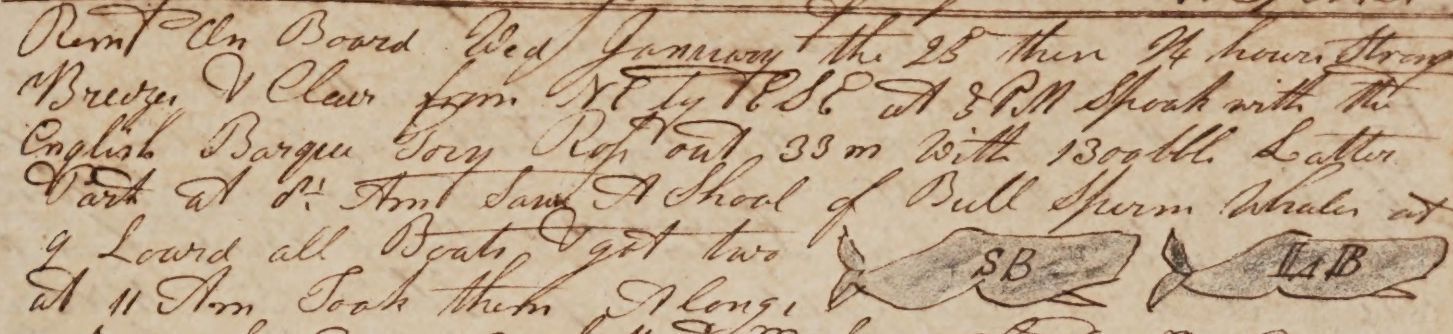 Remt On Board Wed January the 28 then 24 hours Strong
Breezes & Clear from NE to ESE at 3 PM Spoak with the
English Barque Tory Ross out 33 m With 1300bbls Latter
Part at 8 Am Saw A Shoal of Bull Sperm Whales at
9 Lowrd all Boats & got two SB LB
at 11 Am Took them Along